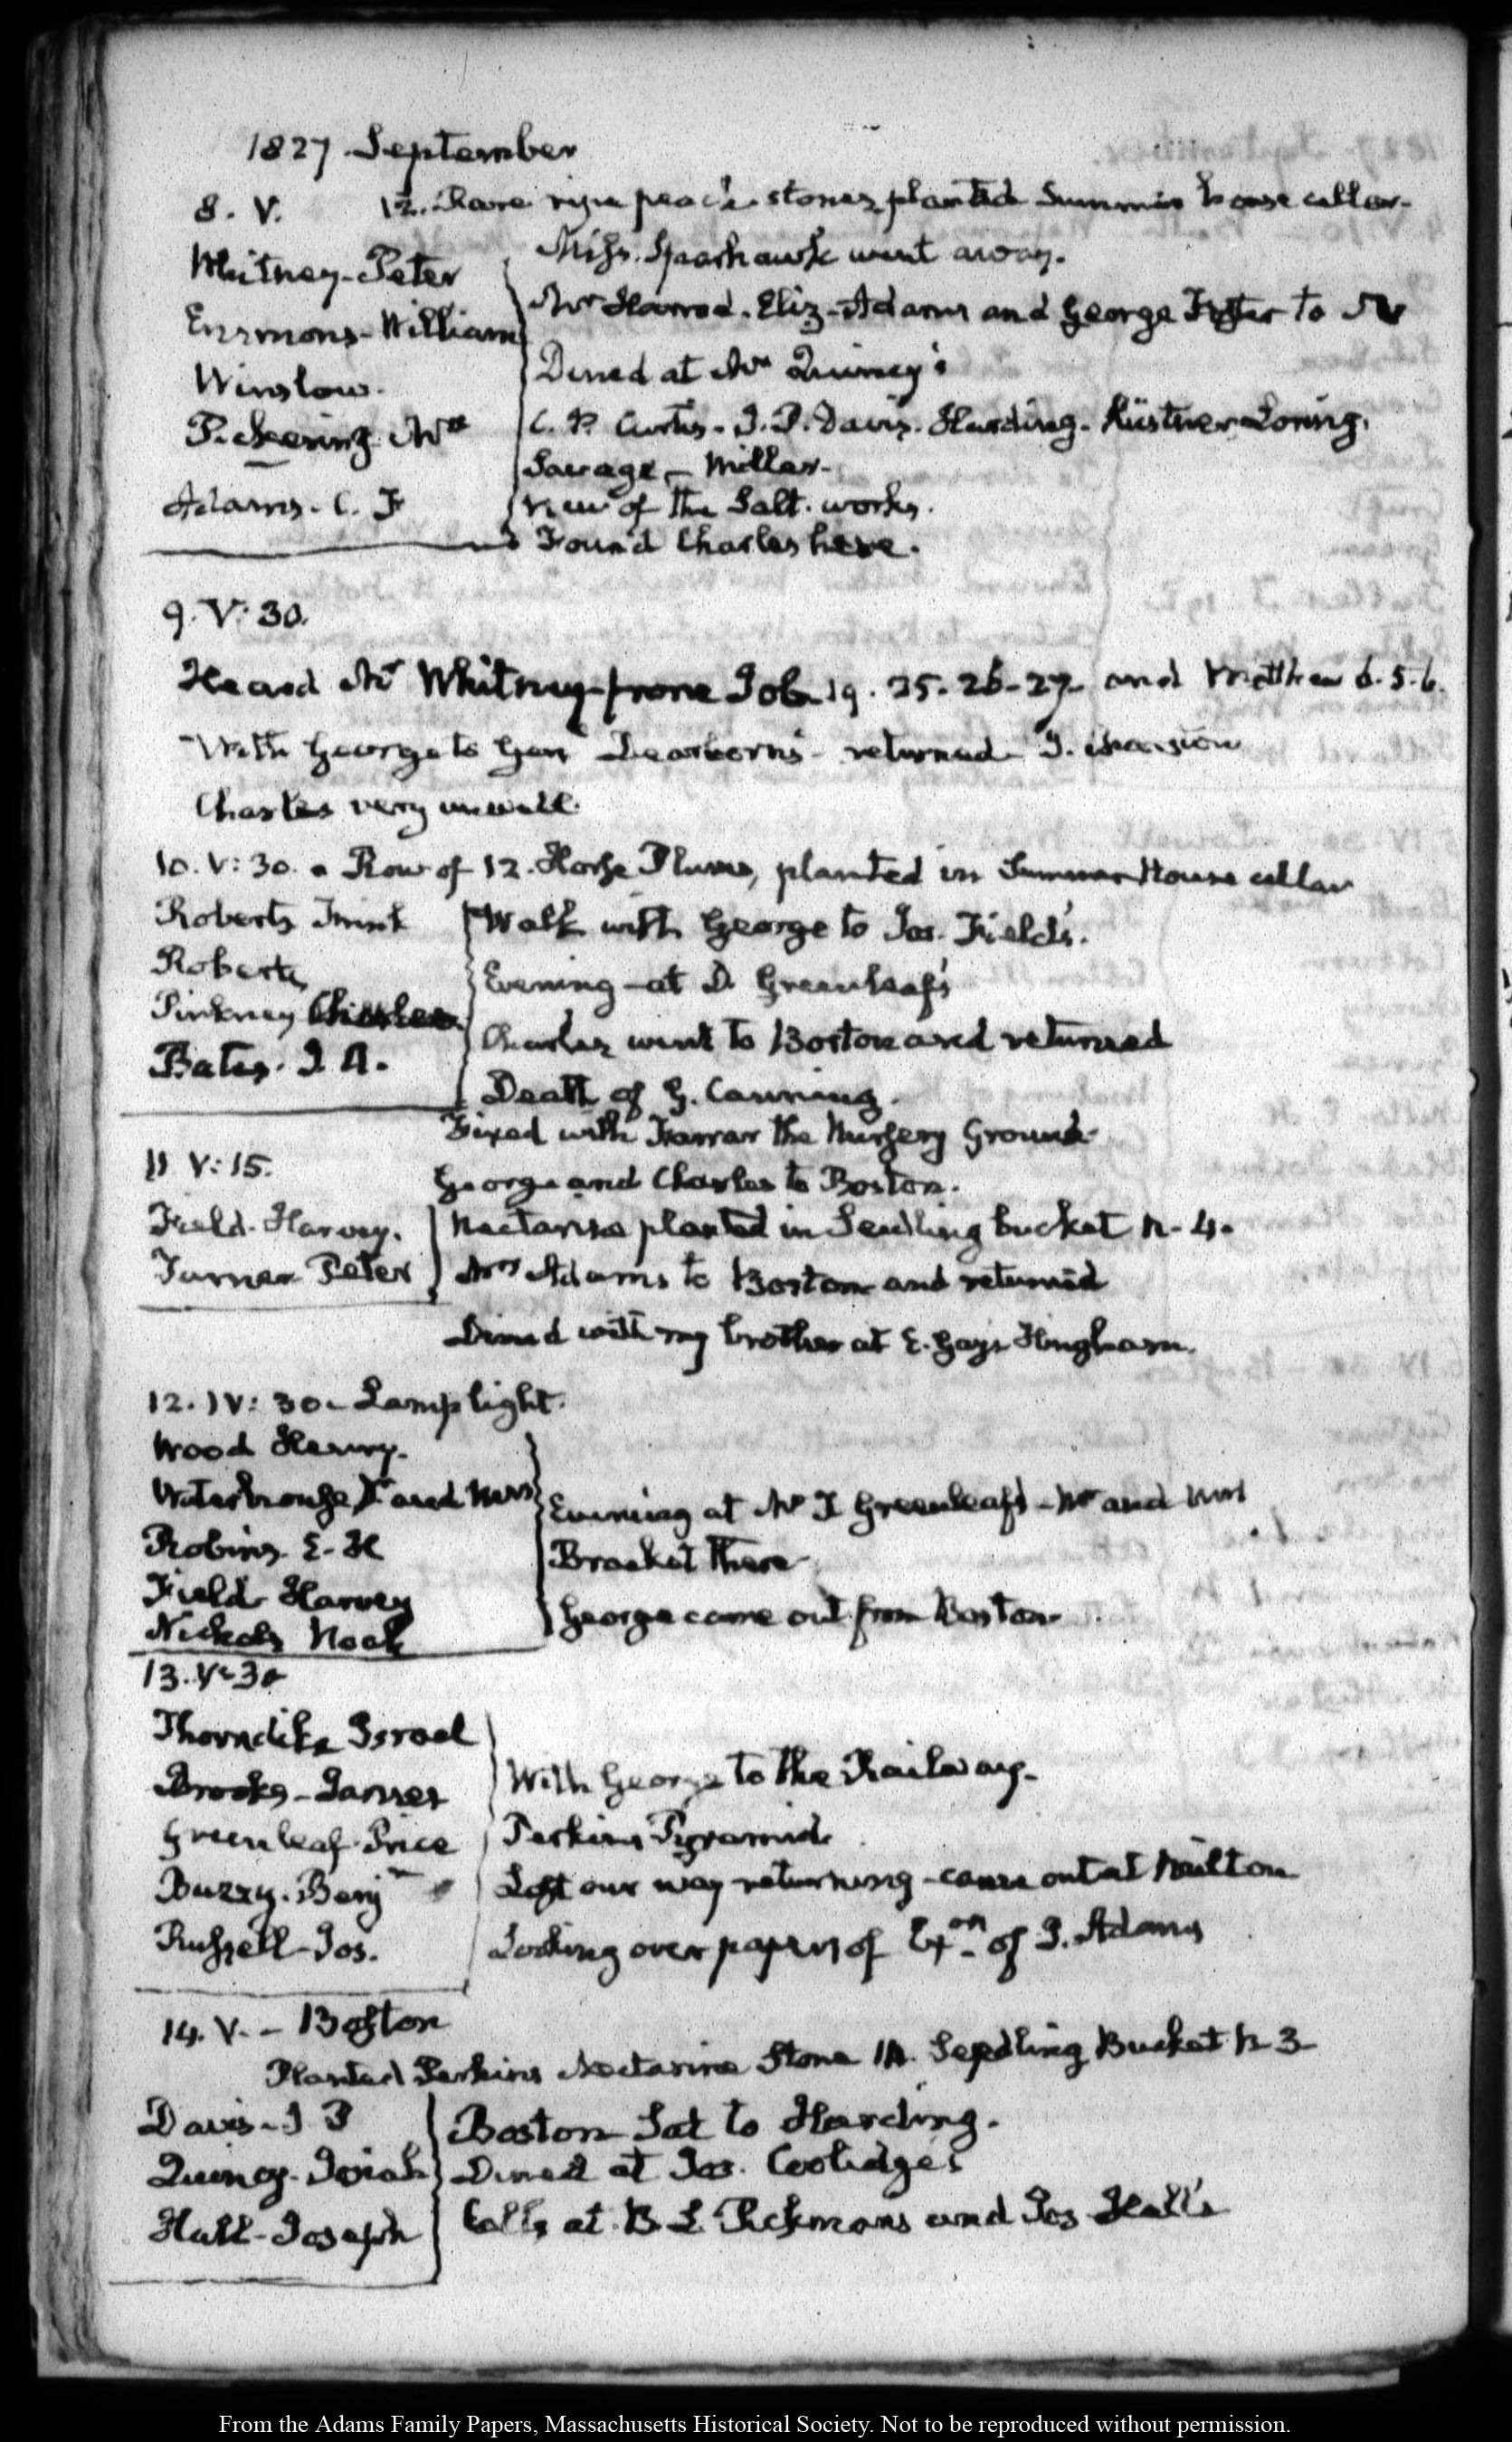 1827 September
8. V. 12. Rare ripe peach stones planted Summer house cellar.
Miss Sparhawk went away.
Whitney-Peter
Mr Harrod. Eliz. Adams and George Foster to
Emmons-William
Dined at Mr Quincy's
Winslow.
Pickering Mr
C. P. Curtis. I. P. Davis. Harding. Küstner Loring.
Savage Miller.
Adams. C. F
View of the Salt works.
Found Charles here.
9. V: 30.
Heard Mr Whitney from Job 19. 25. 26-27 and Matthew 6. 5-6.
With George to Genl Dearborns returned
Charles very unwell.
10. V: 30. a Row of 12. Horse Plums, planted in Summer House cellar
Roberts
Walk with George to Jos. Field's.
Roberts
Evening at D. Greenleaf's
Pinkney Charles
Charles went to Boston and returned
Bates. I. A.
Death of G. Canning.
Fixed with Farrar the Nursery Ground
11 V: 15.
George and Charles to Boston.
Field. Harvey.
Nectarine planted in Seedling bucket N. 4.
Turner Peter
Mrs Adams to Boston and returned
Dined with my brother at E. Gays Hingham.
12. IV: 30. Lamp light.
Wood Henry.
Waterhouse Dr and Mrs
Evening at Mr T Greenleaf's Mr and Mrs
Robins E. H
Bracket there
Field Harvey
George came out from Boston
Nickols Noah
13. V. 30
Thorndike Israel
Brooks-James
With George to the Railway.
Greenleaf Price
Perkins Pyramid
Bussy. Benj
Lost our way returning-came out at Milton
Russell-Jos.
Looking over papers of Exon of J. Adams
14. V. - Boston
Planted Perkins Nectarine Stone in Seedling Bucket N 3
Davis-I P
Boston Sat to Harding.
Quincy-Josiah
Dined at Jos. Coolidge's
Hall-Joseph
Calls at B. L. Pickmans and Jos Hall's
From the Adams Family Papers, Massachusetts Historical Society. Not to be reproduced without permission.